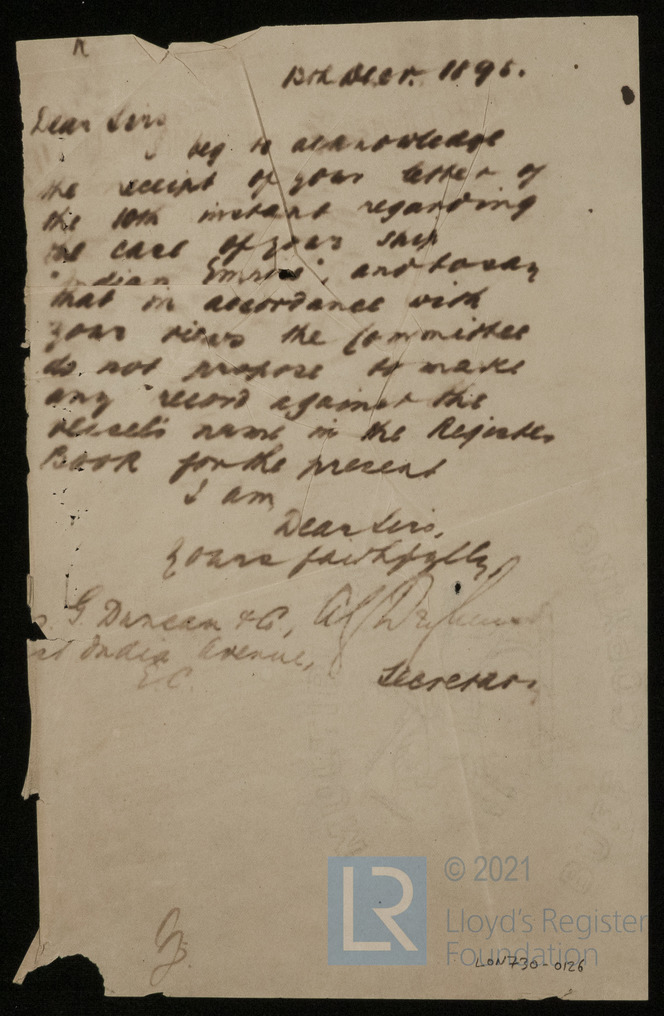 13th Decr. 1895.
Dear Sirs
I beg to acknowledge
the receipt of your letter of
the 10th instant regarding
the case of your ship
"Indian Empire", and to say
that in accordance with
your views the Committee
do not propose to make
any record against the
vessel's name in the Register
Book for the present
I am
Dear Sirs,
Yours faithfully
G. Duncan & Co,
India Avenue,
E.C.
Secretary
© 2021
LR
Lloyd's Register
Foundation
LON730-0126